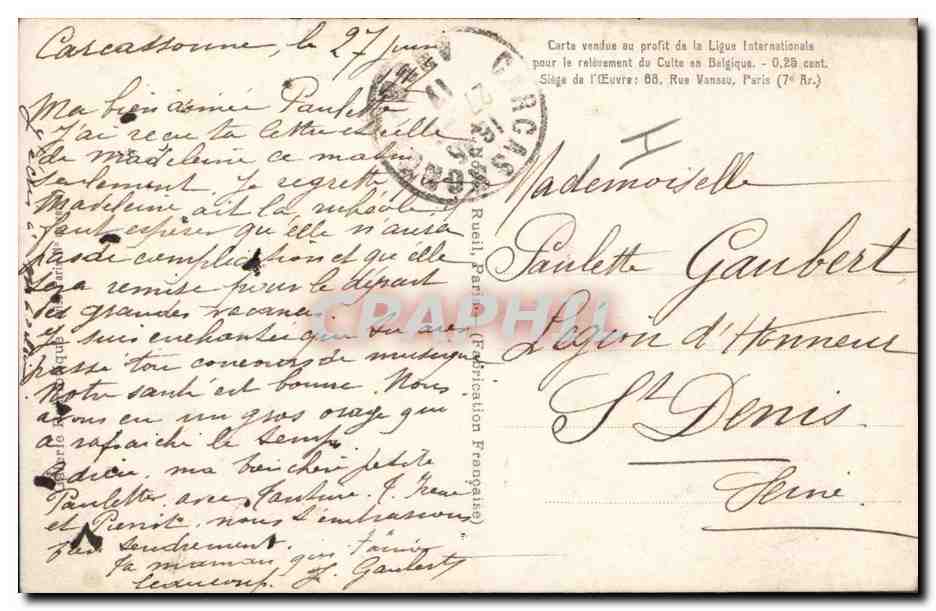 Carcassonne, le 27 juin
Ma bien aimée Paulette
J'ai reçu ta lettre et celle
de Madeleine ce matin
seulement. Je regrette
Madeleine ait la rubéole. Il
faut espérer qu'elle n'aura
pas de complication et qu'elle
sera remise pour le départ
des grandes vacances.
Je suis enchantée que tu aies
passé ton concours de musique
Notre santé est bonne. Nous
avons eu un gros orage qui
a rafraichi le temps.
Adieu, ma bien chère petite
Paulette avec Tantine, J. Irène
et Pierrot, nous t'embrassons
tendrement.
Ta maman qui t'aime
beaucoup. J. Gaubert
Carte vendue au profit de la Ligue Internationale
pour le relèvement du Culte en Belgique. - 0,25 cent.
Siège de l'Œuvre: 68, Rue Vaneau, Paris (7e Ar.)
H
Mademoiselle
Paulette Gaubert
Légion d'Honneur
St Denis
Seine
CARCASSONNE
Rueil, Paris (Fabrication Française)
CPAPHIL